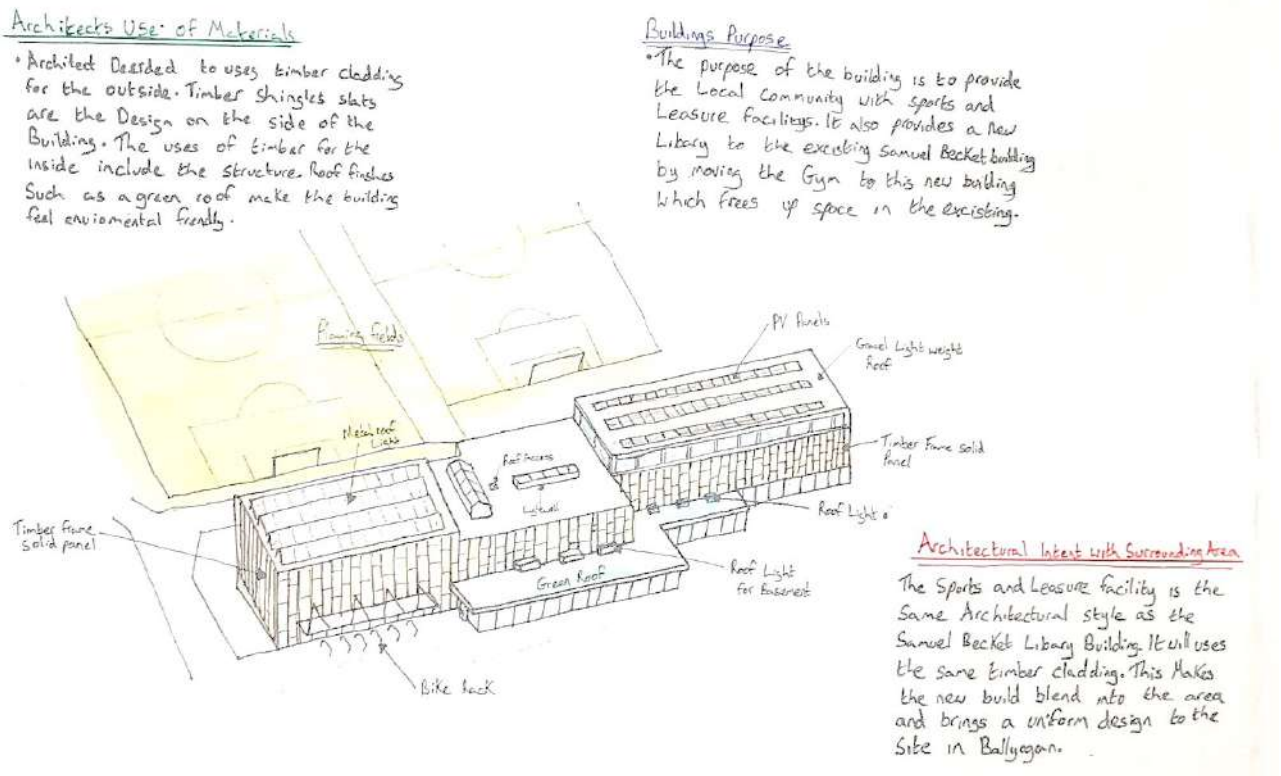 Architects Use of Materials
• Architect Decided to uses timber cladding
for the outside. Timber Shingles slats
are the Design on the side of the
Building. The uses of timber for the
Inside include the Structure. Roof finshes
Such as a green roof make the building
feel enviomental frendly.
Buildings Purpose
• The purpose of the building is to provide
the Local Community with sports and
Leasure facilitys. It also provides a new
Libary to the excisting Samuel Becket building
by moving the Gym to this new building
Which frees up space in the excisting.
Playing fields
PV Panels
Gravel Light weight
Roof
Metal roof
Light
Roof Access
Timber Frame solid
Panel
Roof Light
Timber frame
solid panel
Green Roof
Roof Light
for Basement
Bike Rack
Architectural Intent with Surrounding Area
The Sports and Leasure facility is the
Same Architectural style as the
Samuel Becket Libary Building. It will uses
the same timber cladding. This Makes
the new build blend into the area
and brings a uniform design to the
Site in Ballyogan.